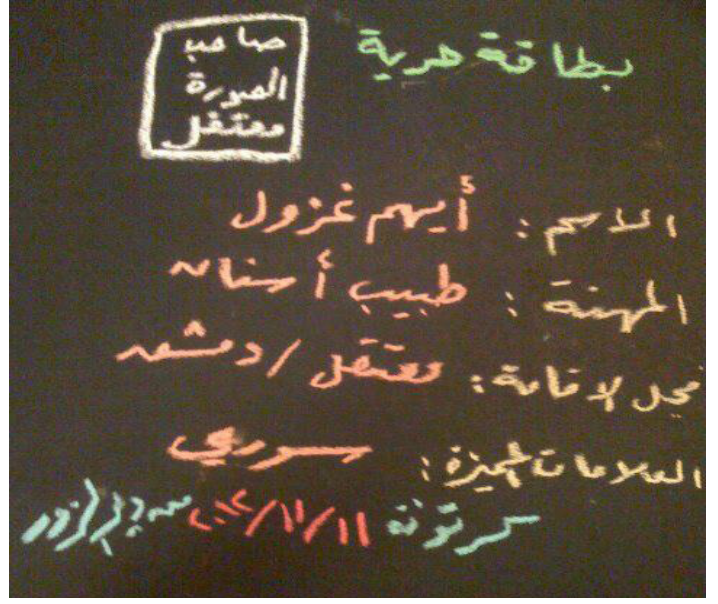 بطاقة حرية
صاحب
الصورة
معتقل
الاسم : أيهم غزول
المهنة : طبيب أسنان
محل الاقامة : معتقل / دمشق
العلامات المميزة : سوري
كرتونة ٢٠١٢/١١/١١ من دير الزور